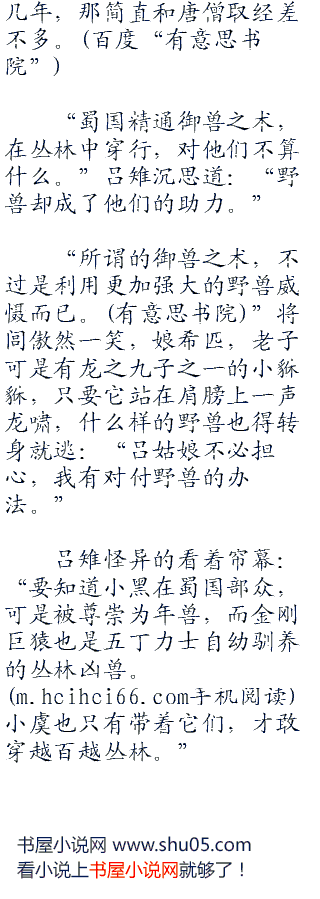 几年，那简直和唐僧取经差
不多。(百度“有意思书
院”)
“蜀国精通御兽之术，
在丛林中穿行，对他们不算
什么。”吕雉沉思道：“野
兽却成了他们的助力。”
“所谓的御兽之术，不
过是利用更加强大的野兽威
慑而已。(有意思书院)”将
闾傲然一笑，娘希匹，老子
可是有龙之九子之一的小貅
貅，只要它站在肩膀上一声
龙啸，什么样的野兽也得转
身就逃：“吕姑娘不必担
心，我有对付野兽的办
法。”
吕雉怪异的看着帘幕：
“要知道小黑在蜀国部众，
可是被尊崇为年兽，而金刚
巨猿也是五丁力士自幼驯养
的丛林凶兽。
(m.hcihci66.com手机阅读)
小虞也只有带着它们，才敢
穿越百越丛林。”
书屋小说网 www.shu05.com
看小说上书屋小说网就够了！